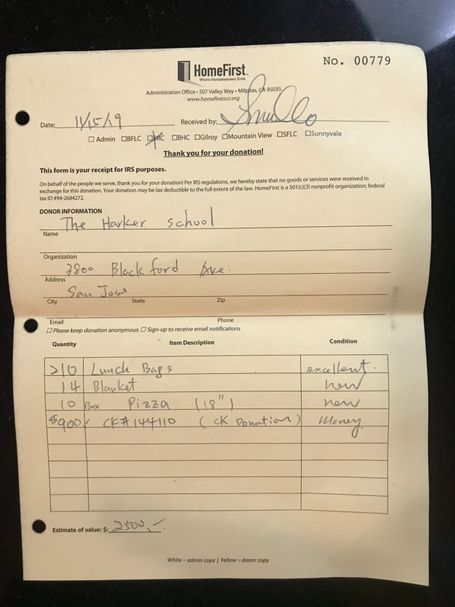 No. 00779
HomeFirst
Where Homelessness Ends.
Administration Office • 507 Valley Way • Milpitas, CA 95035
www.homefirstscc.org
Date: 11/15/19 Received by:
☐ Admin ☐BFLC ☐BHC ☐Gilroy ☐Mountain View ☐SFLC ☐Sunnyvale
Thank you for your donation!
This form is your receipt for IRS purposes.
On behalf of the people we serve, thank you for your donation! Per IRS regulations, we hereby state that no goods or services were received in
exchange for this donation. Your donation may be tax deductible to the full extent of the law. HomeFirst is a 501(c)(3) nonprofit organization; federal
tax ID #94-2684272.
DONOR INFORMATION
The Harker School
Name
Organization
3800 Blackford Ave.
Address
San Jose
City State Zip
Email Phone
☐ Please keep donation anonymous ☐ Sign-up to receive email notifications
Quantity Item Description Condition
210 Lunch Bags excellent.
14 Blanket new
10 Box Pizza (18") new
$900/ CK#144110 (CK Donation) Money
Estimate of value: $ 2500.-
White – admin copy | Yellow – donor copy